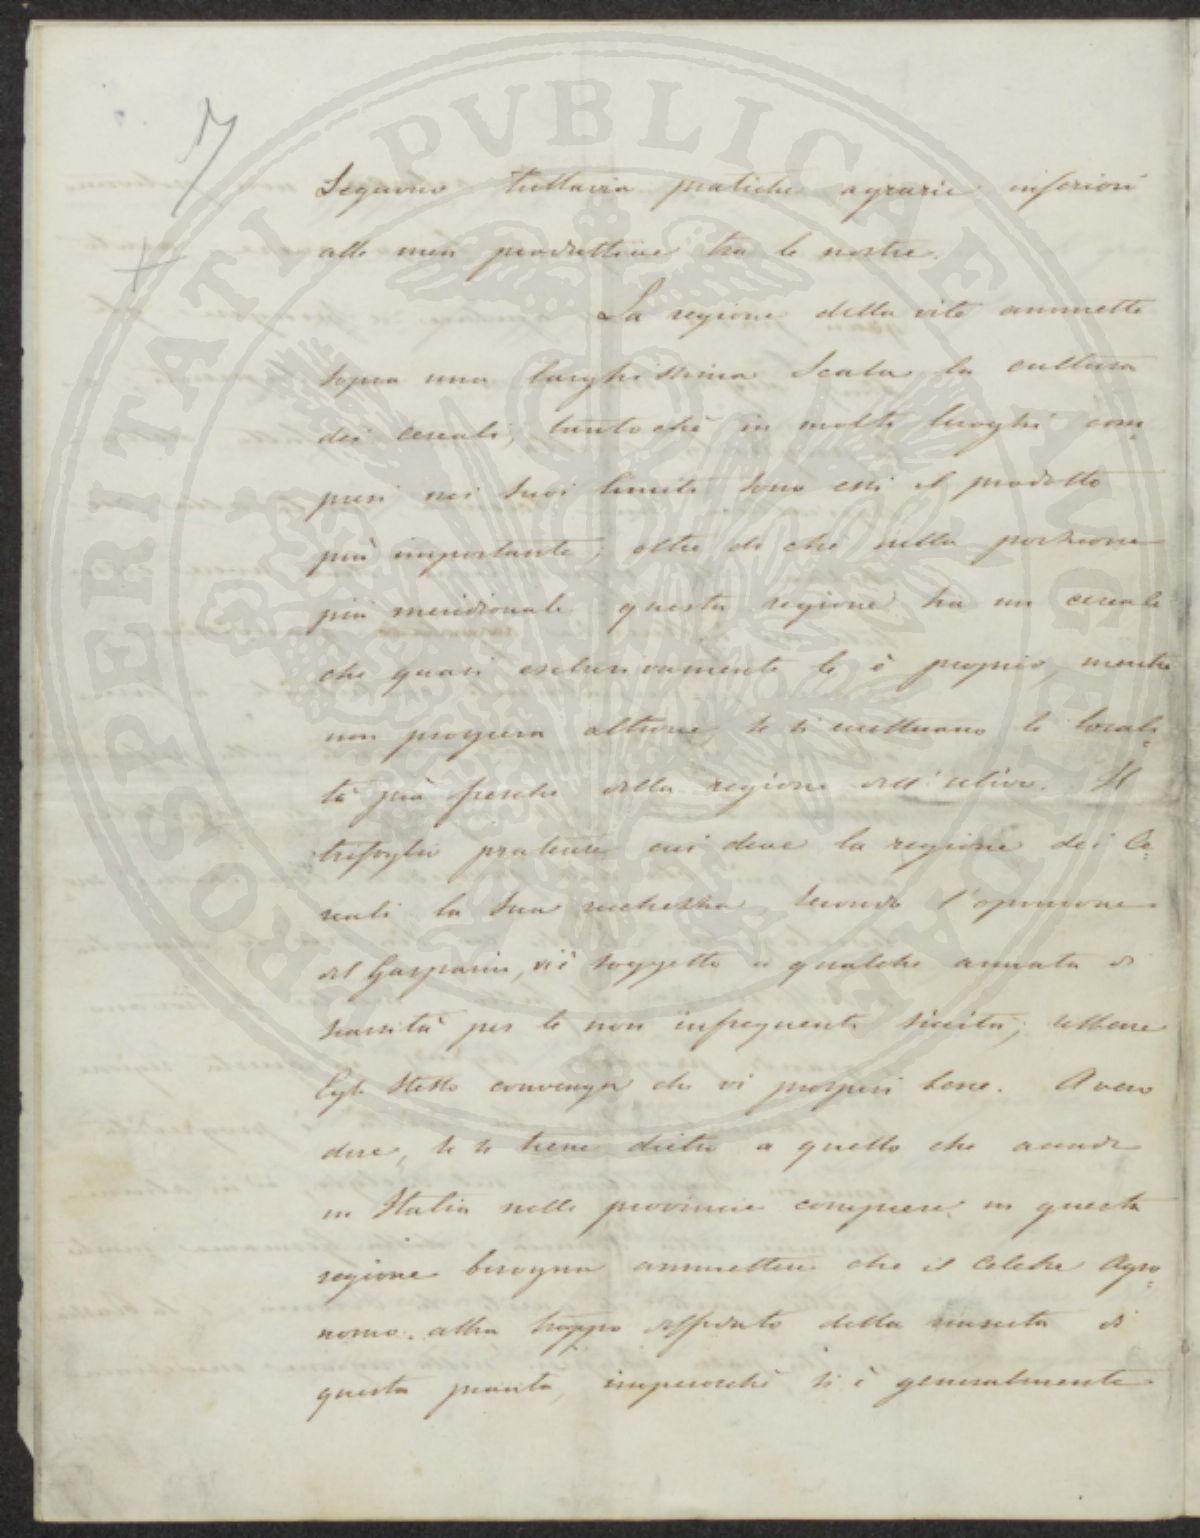 Seguono tuttavia pratiche agrarie inferiori
alle men produttive tra le nostre.
La regione della vite ammette
sopra una larghissima scala la cultura
dei cereali, tantochè in molti luoghi com=
presi nei suoi limiti sono essi il prodotto
più importante; oltre di che nella porzione
più meridionale questa regione ha un cereale
che quasi esclusivamente le è proprio, mentre
non prospera altrove, se si eccettuano le locali=
tà più fresche della regione dell'ulivo. Il
trifoglio pratense cui deve la regione dei Ce=
reali la sua ricchezza, secondo l'opinione
del Gasparin, vi è soggetto a qualche annata di
scarsità per le non infrequenti siccità; sebbene
Egli stesso convenga che vi prosperi bene. A vero
dire, se si tiene dietro a quello che accade
in Italia nelle provincie comprese in questa
regione bisogna ammettere che il celebre Agro=
nomo abbia troppo diffidato della riuscita di
questa pianta, imperocchè si è generalmente
PROSPERITATI PVBLICAE AVGENDAE